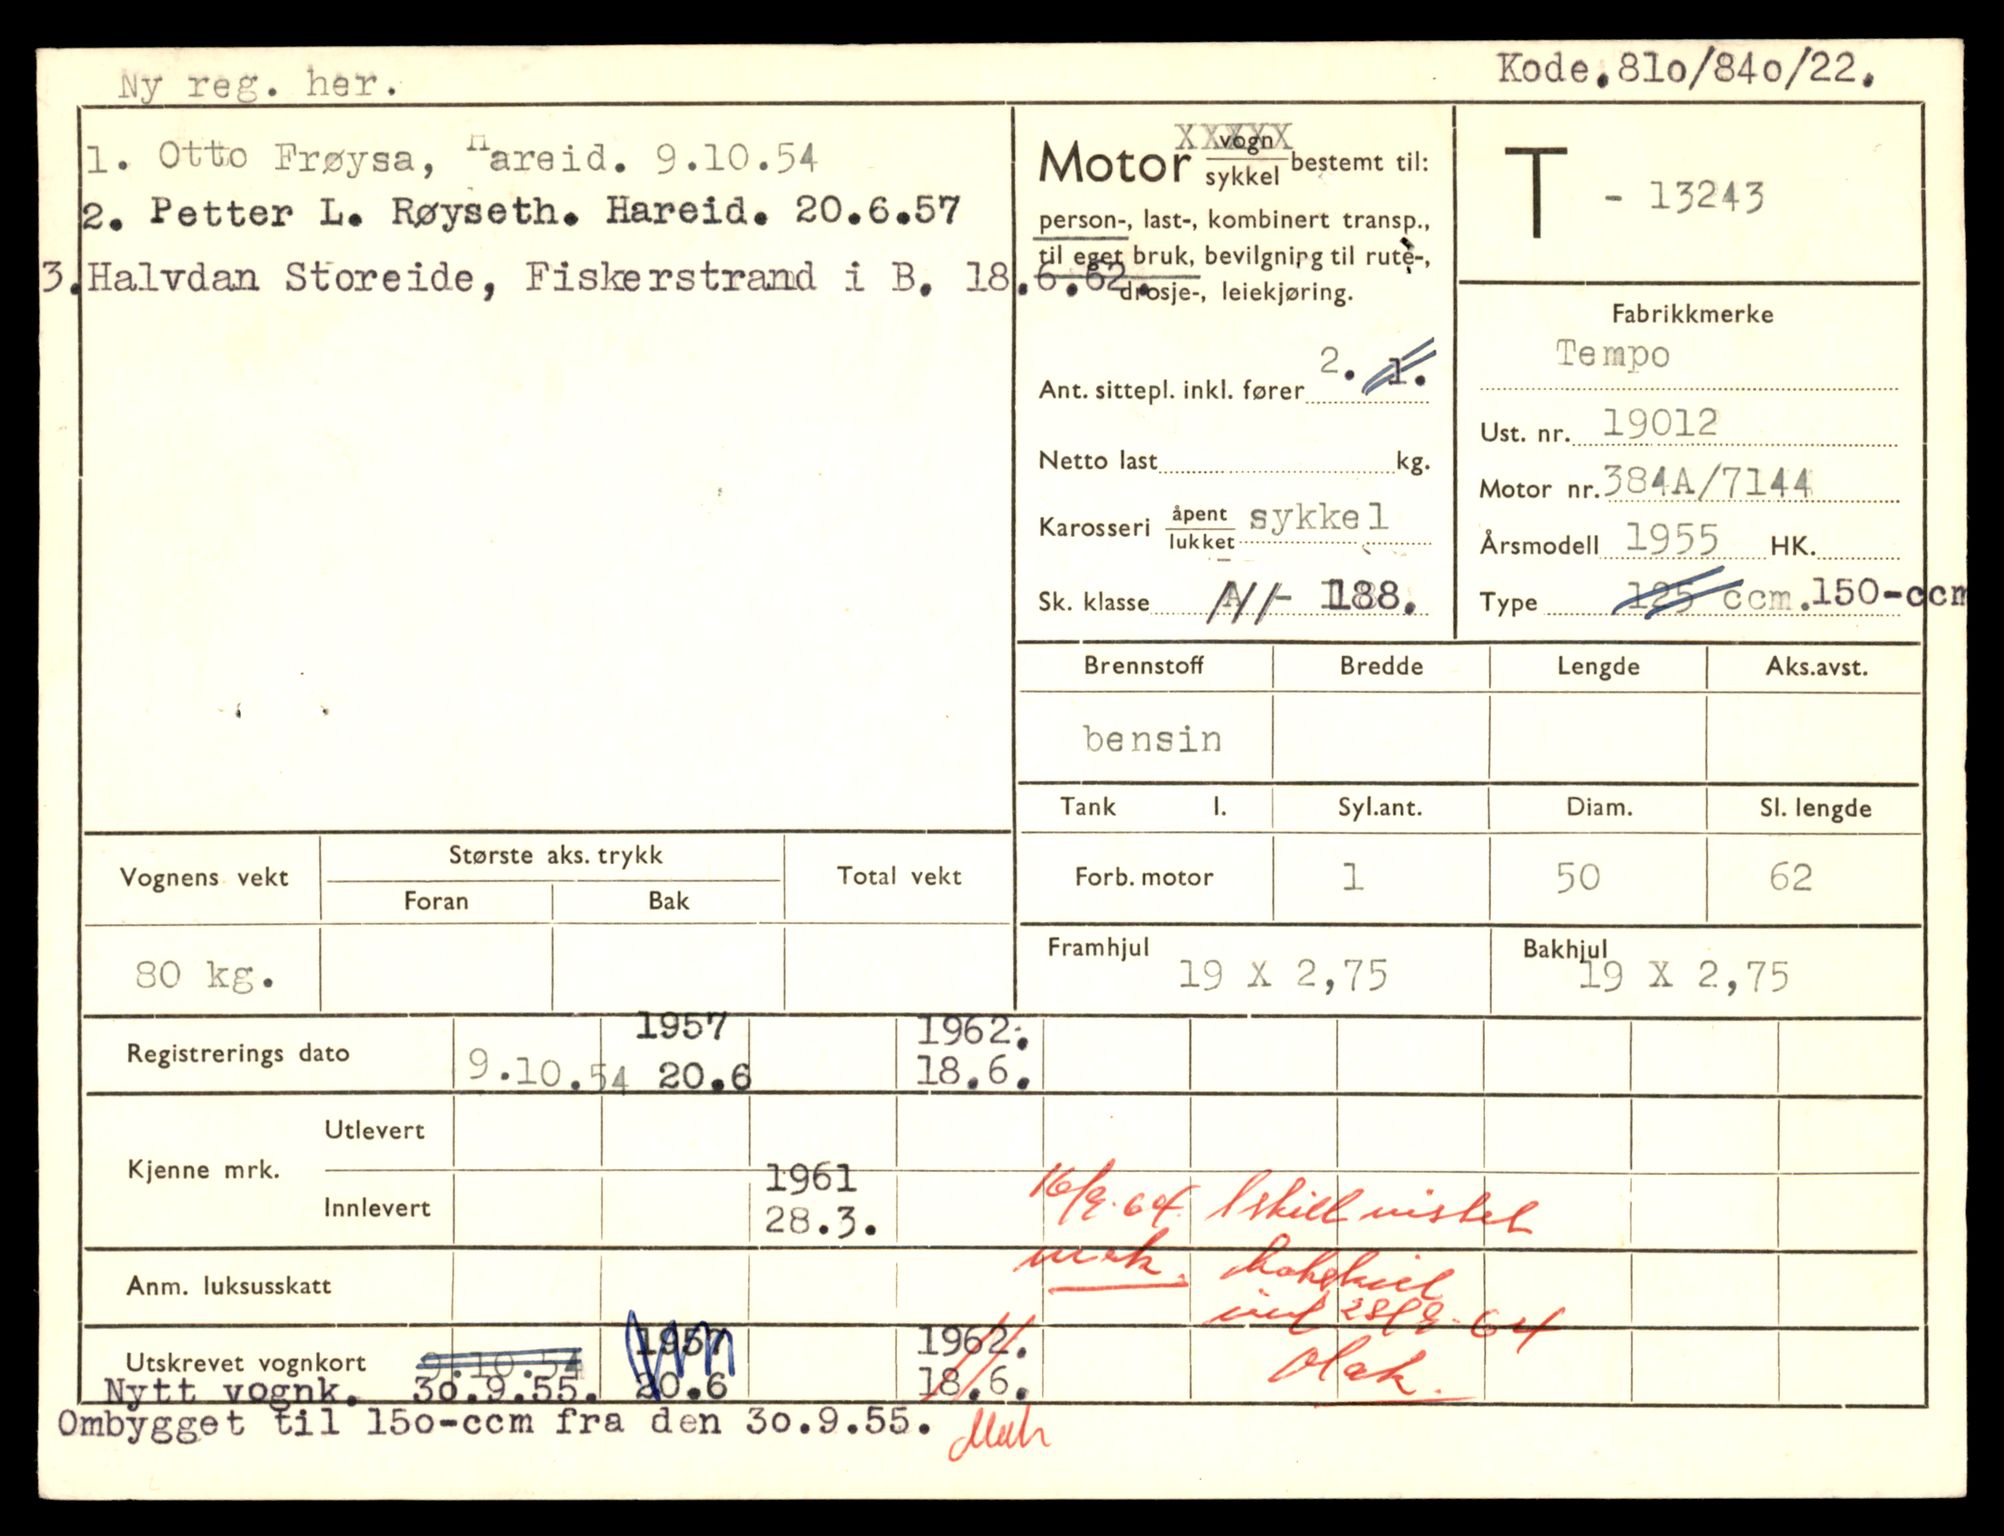 Ny reg. her.
Kode.81o/84o/22.
1. Otto Frøysa, Hareid. 9.10.54
2. Petter L. Røyseth. Hareid. 20.6.57
3. Halvdan Storeide, Fiskerstrand i B. 18.6.62.
XXXXX
Motor vogn/sykkel bestemt til:
person-, last-, kombinert transp.,
til eget bruk, bevilgning til rute-,
drosje-, leiekjøring.
Ant. sittepl. inkl. fører 2. 1.
Netto last kg.
Karosseri åpent/lukket sykkel
Sk. klasse A - 188.
T - 13243
Fabrikkmerke
Tempo
Ust. nr. 19012
Motor nr. 384A/7144
Årsmodell 1955 HK.
Type 125 ccm. 150-ccm
Brennstoff Bredde Lengde Aks.avst.
bensin
Tank l. Syl.ant. Diam. Sl. lengde
Forb. motor 1 50 62
Framhjul 19 X 2,75 Bakhjul 19 X 2,75
Vognens vekt Største aks. trykk Total vekt
Foran Bak
80 kg.
1957 1962.
Registrerings dato 9.10.54 20.6 18.6.
Utlevert
Kjenne mrk.
1961
Innlevert 28.3.
16/9.64. 1 skilt mistet
mrk.
Bakskilt
inl 28/9-64
Anm. luksusskatt
1957 1962.
Utskrevet vognkort 9.10.54 20.6 18.6.
Nytt vognk. 3o.9.55.
Ombygget til 15o-ccm fra den 3o.9.55.